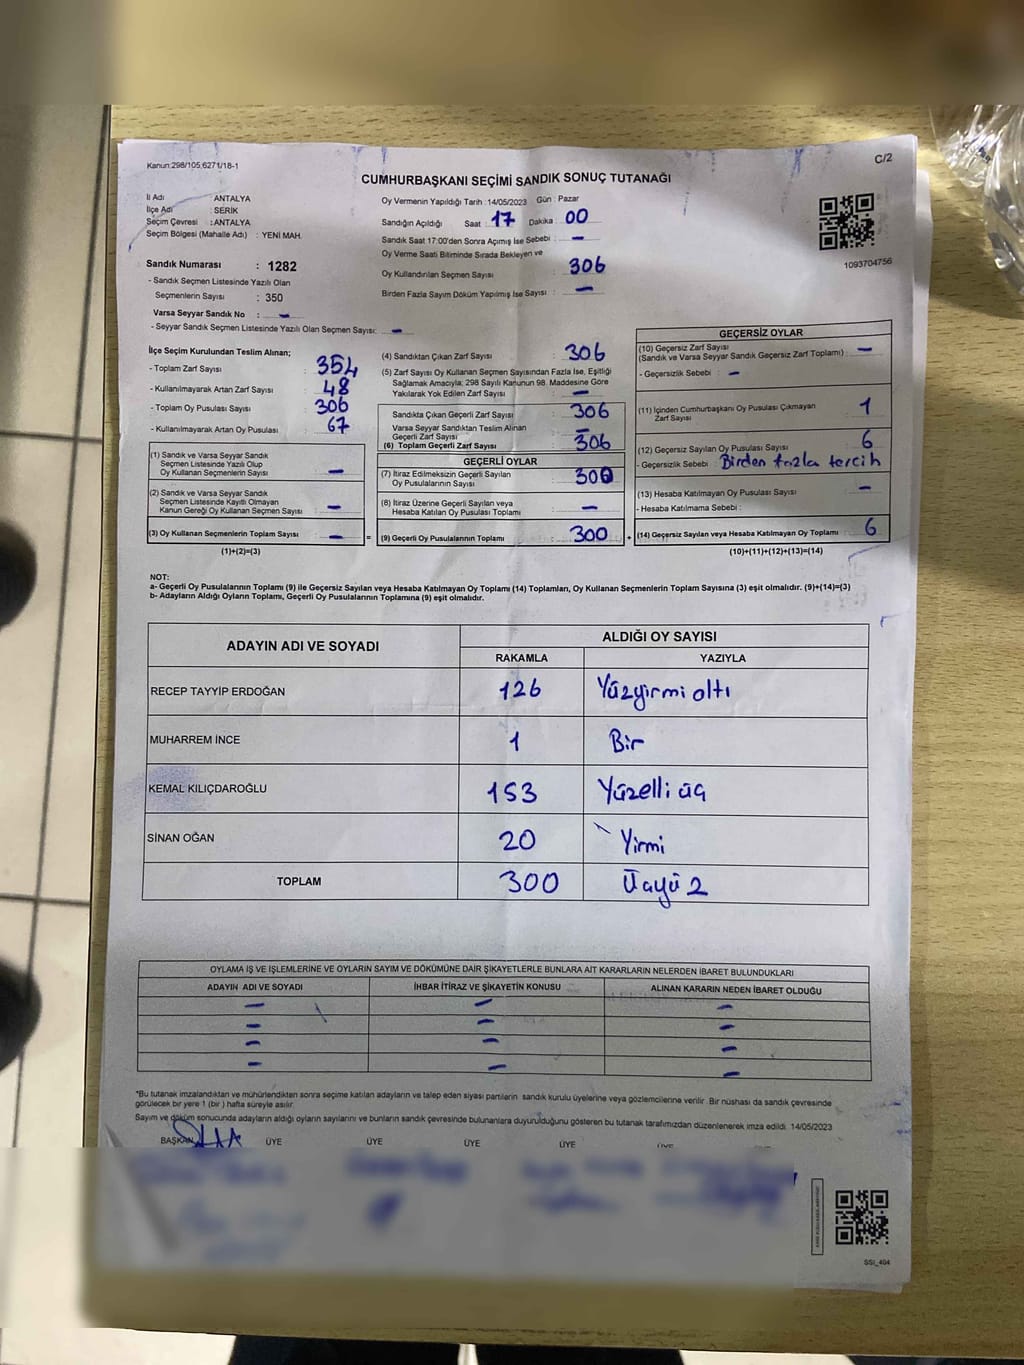 Kanun:298/105,6271/18-1
C/2
CUMHURBAŞKANI SEÇİMİ SANDIK SONUÇ TUTANAĞI
İl Adı : ANTALYA
İlçe Adı : SERİK
Seçim Çevresi : ANTALYA
Seçim Bölgesi (Mahalle Adı) : YENİ MAH.
Oy Vermenin Yapıldığı Tarih :14/05/2023 Gün : Pazar
Sandığın Açıldığı Saat : 17 Dakika : 00
Sandık Saat 17:00'den Sonra Açımış İse Sebebi : -
Oy Verme Saati Bitiminde Sırada Bekleyen ve
Oy Kullandırılan Seçmen Sayısı : 306
Birden Fazla Sayım Döküm Yapılmış İse Sayısı : -
1093704756
Sandık Numarası : 1282
- Sandık Seçmen Listesinde Yazılı Olan
Seçmenlerin Sayısı : 350
Varsa Seyyar Sandık No : -
- Seyyar Sandık Seçmen Listesinde Yazılı Olan Seçmen Sayısı: -
İlçe Seçim Kurulundan Teslim Alınan;
- Toplam Zarf Sayısı : 354
- Kullanılmayarak Artan Zarf Sayısı : 48
- Toplam Oy Pusulası Sayısı : 306
- Kullanılmayarak Artan Oy Pusulası : 67
(1) Sandık ve Varsa Seyyar Sandık
Seçmen Listesinde Yazılı Olup
Oy Kullanan Seçmenlerin Sayısı -
(2) Sandık ve Varsa Seyyar Sandık
Seçmen Listesinde Kayıtlı Olmayan
Kanun Gereği Oy Kullanan Seçmen Sayısı -
(3) Oy Kullanan Seçmenlerin Toplam Sayısı -
(1)+(2)=(3)
(4) Sandıktan Çıkan Zarf Sayısı : 306
(5) Zarf Sayısı Oy Kullanan Seçmen Sayısından Fazla İse, Eşitliği
Sağlamak Amacıyla; 298 Sayılı Kanunun 98. Maddesine Göre
Yakılarak Yok Edilen Zarf Sayısı : -
Sandıkta Çıkan Geçerli Zarf Sayısı : 306
Varsa Seyyar Sandıktan Teslim Alınan
Geçerli Zarf Sayısı : -
(6) Toplam Geçerli Zarf Sayısı 306
GEÇERLİ OYLAR
(7) İtiraz Edilmeksizin Geçerli Sayılan
Oy Pusulalarının Sayısı 300
(8) İtiraz Üzerine Geçerli Sayılan veya
Hesaba Katılan Oy Pusulası Toplamı -
= (9) Geçerli Oy Pusulalarının Toplamı 300 +
GEÇERSİZ OYLAR
(10) Geçersiz Zarf Sayısı
(Sandık ve Varsa Seyyar Sandık Geçersiz Zarf Toplamı) : -
- Geçersizlik Sebebi : -
(11) İçinden Cumhurbaşkanı Oy Pusulası Çıkmayan
Zarf Sayısı : 1
(12) Geçersiz Sayılan Oy Pusulası Sayısı : 6
- Geçersizlik Sebebi : Birden fazla tercih
(13) Hesaba Katılmayan Oy Pusulası Sayısı : -
- Hesaba Katılmama Sebebi :
(14) Geçersiz Sayılan veya Hesaba Katılmayan Oy Toplamı : 6
(10)+(11)+(12)+(13)=(14)
NOT:
a- Geçerli Oy Pusulalarının Toplamı (9) ile Geçersiz Sayılan veya Hesaba Katılmayan Oy Toplamı (14) Toplamları, Oy Kullanan Seçmenlerin Toplam Sayısına (3) eşit olmalıdır. (9)+(14)=(3)
b- Adayların Aldığı Oyların Toplamı, Geçerli Oy Pusulalarının Toplamına (9) eşit olmalıdır.
ADAYIN ADI VE SOYADI ALDIĞI OY SAYISI
RAKAMLA YAZIYLA
RECEP TAYYİP ERDOĞAN 126 Yüzyirmi altı
MUHARREM İNCE 1 Bir
KEMAL KILIÇDAROĞLU 153 Yüzelli üç
SİNAN OĞAN 20 Yirmi
TOPLAM 300 Üçyüz
OYLAMA İŞ VE İŞLEMLERİNE VE OYLARIN SAYIM VE DÖKÜMÜNE DAİR ŞİKAYETLERLE BUNLARA AİT KARARLARIN NELERDEN İBARET BULUNDUKLARI
ADAYIN ADI VE SOYADI İHBAR İTİRAZ VE ŞİKAYETİN KONUSU ALINAN KARARIN NEDEN İBARET OLDUĞU
- - -
- - -
- - -
- - -
*Bu tutanak imzalandıktan ve mühürlendikten sonra seçime katılan adayların ve talep eden siyasi partilerin sandık kurulu üyelerine veya gözlemcilerine verilir. Bir nüshası da sandık çevresinde
görülecek bir yere 1 (bir) hafta süreyle asılır.
Sayım ve döküm sonucunda adayların aldığı oyların sayılarını ve bunların sandık çevresinde bulunanlara duyurulduğunu gösteren bu tutanak tarafımızdan düzenlenerek imza edildi. 14/05/2023
BAŞKAN ÜYE ÜYE ÜYE ÜYE ÜYE
SSI_404